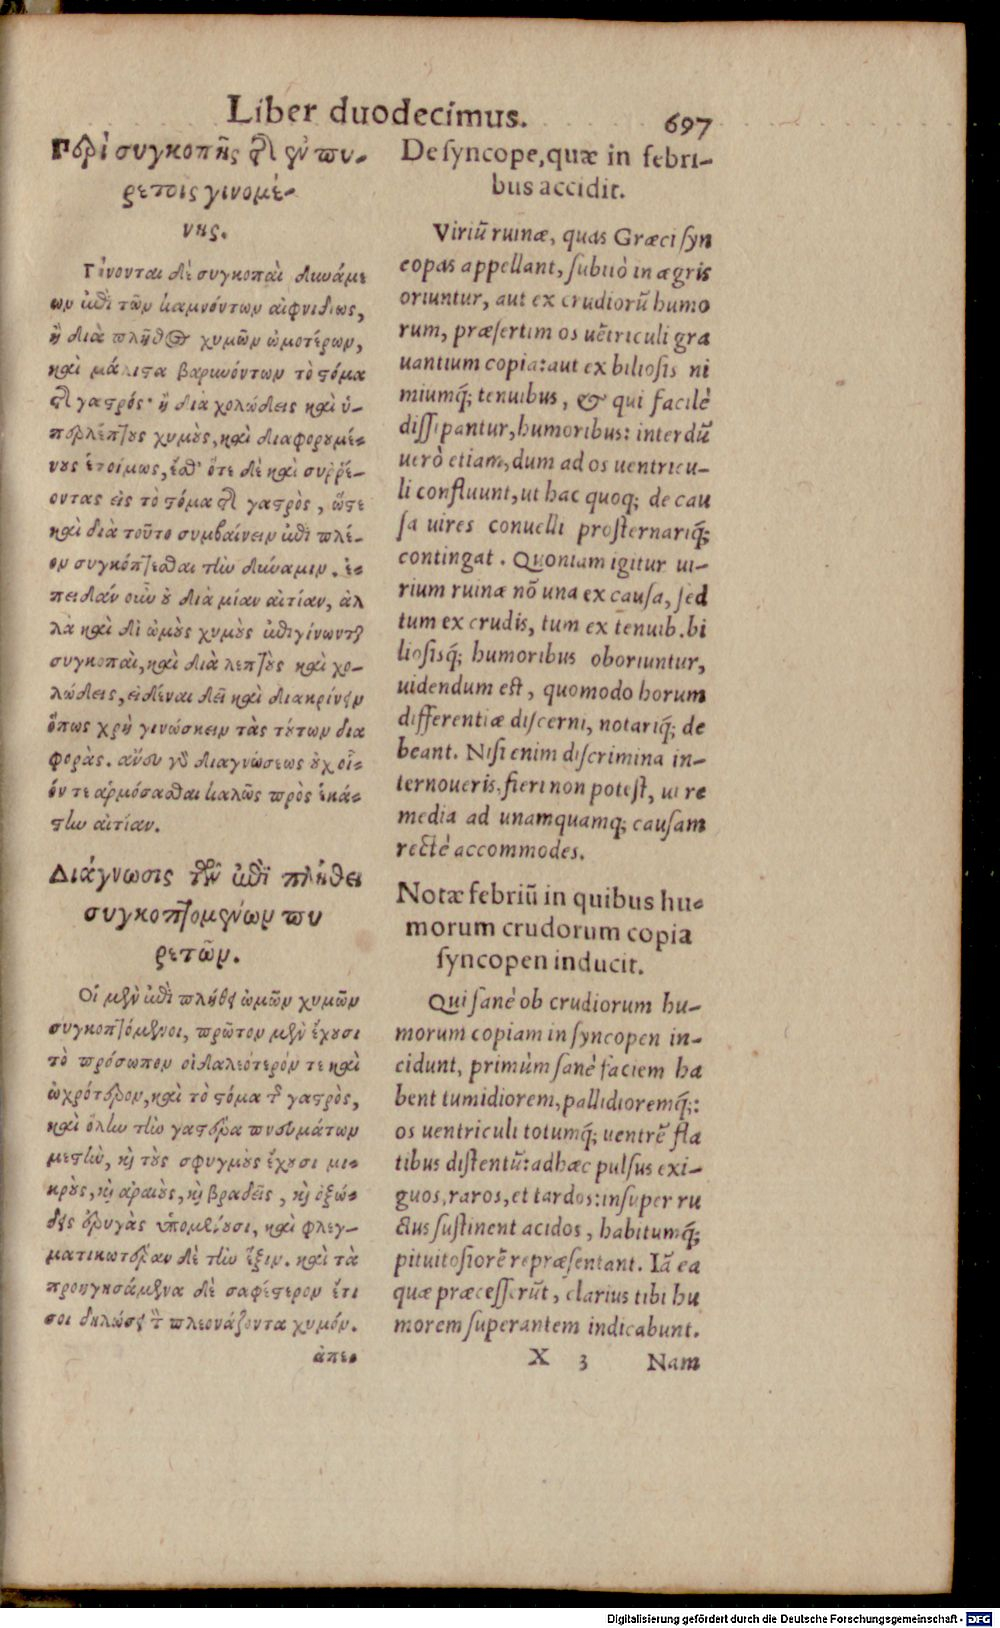 Liber duodecimus.
697
Περὶ συγκοπῆς τῆς ἐν πυ-
ρετοῖς γινομέ-
νης.
Γίνονται δὲ συγκοπαὶ δυνάμε
ων ἐπὶ τῶν καμνόντων αἰφνιδίως,
ἢ διὰ πλῆθος χυμῶν ὠμοτέρων,
καὶ μάλιστα βαρυνόντων τὸ στόμα
τῆς γαστρός· ἢ διὰ χολώδεις καὶ ὑ-
περλέπτους χυμοὺς, καὶ διαφορουμέ-
νους ἑτοίμως, ἔσθ' ὅτε δὲ καὶ συῤῥέ-
οντας εἰς τὸ στόμα τῆς γαστρὸς, ὥστε
καὶ διὰ τοῦτο συμβαίνειν ἐπὶ πλέ-
ον συγκόπτεσθαι τὴν δύναμιν. ἐ-
πειδὰν οὖν οὐ διὰ μίαν αἰτίαν, ἀλ
λὰ καὶ δι ὠμοὺς χυμοὺς ἐπιγίνωνται
συγκοπαὶ, καὶ διὰ λεπτοὺς καὶ χο-
λώδεις, εἰδέναι δεῖ καὶ διακρίνειν
ὅπως χρὴ γινώσκειν τὰς τούτων δια
φορὰς. ἄνευ γὰρ διαγνώσεως οὐχ οἷ-
όν τε ἁρμόσασθαι καλῶς πρὸς ἑκά-
στην αἰτίαν.
Διάγνωσις τῶν ἐπὶ πλήθει
συγκοπτομένων πυ
ρετῶν.
Οἱ μὲν ἐπὶ πλήθει ὠμῶν χυμῶν
συγκοπτόμενοι, πρῶτον μὲν ἔχουσι
τὸ πρόσωπον οἰδαλεότερόν τε καὶ
ὠχρότερον, καὶ τὸ στόμα τῆς γαστρὸς,
καὶ ὅλην τὴν γαστέρα πνευμάτων
μεστὴν, καὶ τοὺς σφυγμοὺς ἔχουσι μι-
κροὺς, καὶ ἀραιοὺς, καὶ βραδεῖς, καὶ ὀξώ-
δεις ἐρυγὰς ὑπομένουσι, καὶ φλεγ-
ματικωτέραν δὲ τὴν ἕξιν. καὶ τὰ
προηγησάμενα δὲ σαφέστερον ἔτι
σοι δηλώσει τὸν πλεονάζοντα χυμόν.
ἀπε-
De syncope, quæ in febri-
bus accidit.
Viriũ ruinæ, quas Græci syn
copas appellant, subitò in ægris
oriuntur, aut ex crudiorũ humo
rum, præsertim os uẽtriculi gra
uantium copia: aut ex biliosis ni
miumq́; tenuibus, & qui facilè
dissipantur, humoribus: interdũ
uerò etiam, dum ad os uentricu-
li confluunt, ut hac quoq; de cau
sa uires conuelli prosternariq́;
contingat. Quoniam igitur ui-
rium ruinæ nõ una ex causa, sed
tum ex crudis, tum ex tenuib. bi
liosisq́; humoribus oboriuntur,
uidendum est, quomodo horum
differentiæ discerni, notariq́; de
beant. Nisi enim discrimina in-
ternoueris, fieri non potest, ut re
media ad unamquamq; causam
rectè accommodes.
Notæ febriũ in quibus hu-
morum crudorum copia
syncopen inducit.
Qui sanè ob crudiorum hu-
morum copiam in syncopen in-
cidunt, primùm sanè faciem ha
bent tumidiorem, pallidioremq́;:
os uentriculi totumq́; uentrẽ fla
tibus distentũ: ad hæc pulsus exi-
guos, raros, et tardos: insuper ru
ctus sustinent acidos, habitumq́;
pituitosiorẽ repræsentant. Iã ea
quæ præcesserũt, clarius tibi hu
morem superantem indicabunt.
X 3 Nam
Digitalisierung gefördert durch die Deutsche Forschungsgemeinschaft - DFG